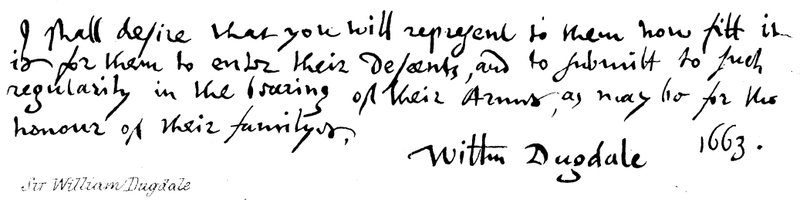 I shall desire that you will represent to them how fitt it
is for them to enter their Descents, and to submitt to such
regularity in the bearing of their Armes, as may be for the
honour of their familyes.
Willm Dugdale 1663.
Sir William Dugdale